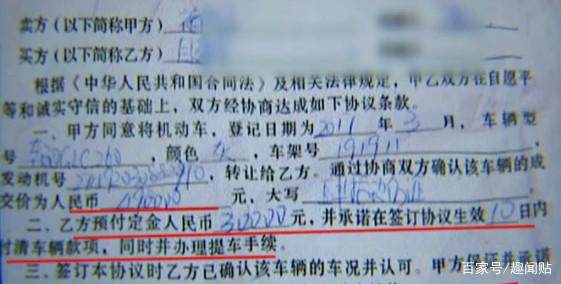 卖方(以下简称甲方)
买方(以下简称乙方)
根据《中华人民共和国合同法》及相关法律规定,甲乙双方在自愿平
等和诚实守信的基础上,双方经协商达成如下协议条款。
一、甲方同意将机动车,登记日期为2017年3月,车辆型
号 GLC260,颜色灰,车架号
发动机号,转让给乙方。通过协商双方确认该车辆的成
交价为人民币 元,大写
二、乙方预付定金人民币300000元,并承诺在签订协议生效10日内
付清车辆款项,同时并办理提车手续。
三、签订本协议时乙方已确认该车辆的车况并认可。甲方保证并承诺
百家号/趣闻贴